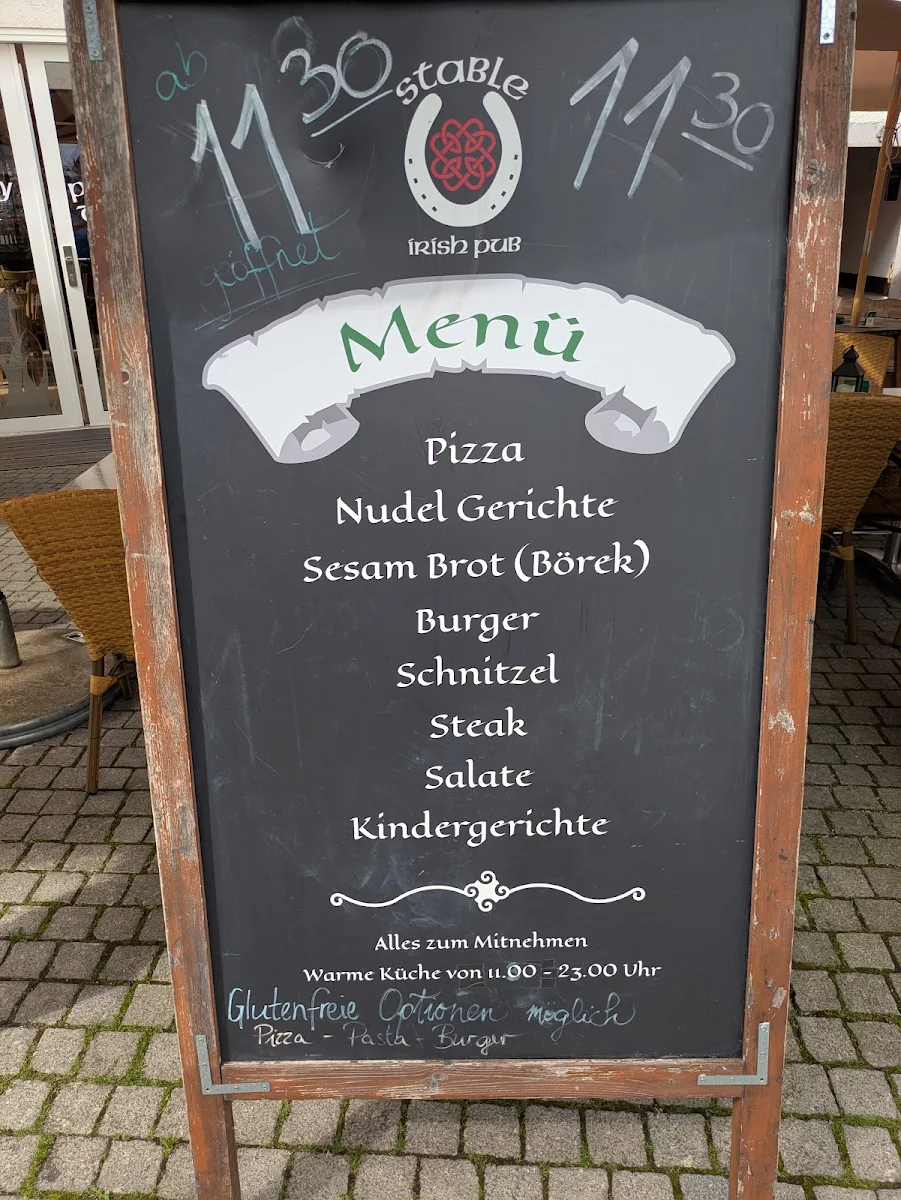 ab
11 30
geöffnet
Stable
Irish Pub
11 30
Menü
Pizza
Nudel Gerichte
Sesam Brot (Börek)
Burger
Schnitzel
Steak
Salate
Kindergerichte
Alles zum Mitnehmen
Warme Küche von 11.00 - 23.00 Uhr
Glutenfreie Optionen möglich
Pizza - Pasta - Burger